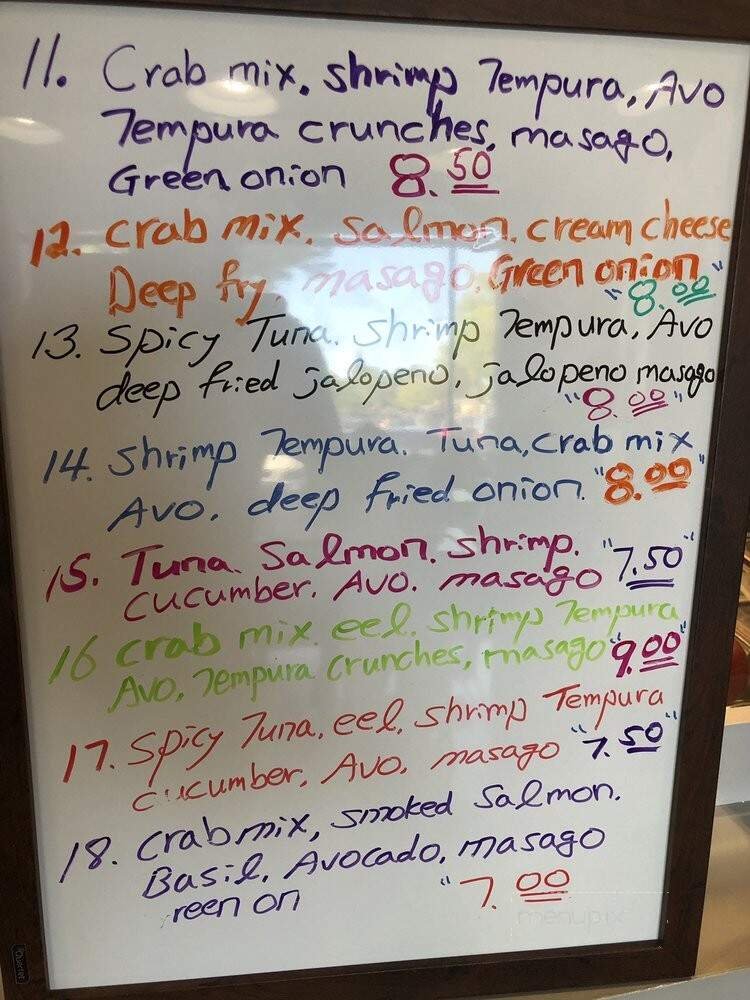 11. Crab mix, shrimp Tempura, Avo
Tempura crunches, masago,
Green onion 8.50
12. crab mix. salmon. cream cheese
Deep fry, masago, Green onion
"8.00"
13. Spicy Tuna. shrimp Tempura, Avo
deep fried jalopeno, jalopeno masago
"8.00"
14. shrimp Tempura. Tuna, crab mix
Avo. deep fried onion. "8.00"
15. Tuna. Salmon. shrimp.
cucumber. Avo. masago "7.50"
16 crab mix. eel. shrimp Tempura
Avo, Tempura crunches, masago "9.00"
17. spicy Tuna, eel, shrimp Tempura
cucumber. Avo. masago "7.50"
18. crab mix, smoked salmon.
Basil, Avocado, masago
reen on "7.00
menupix
Quartet